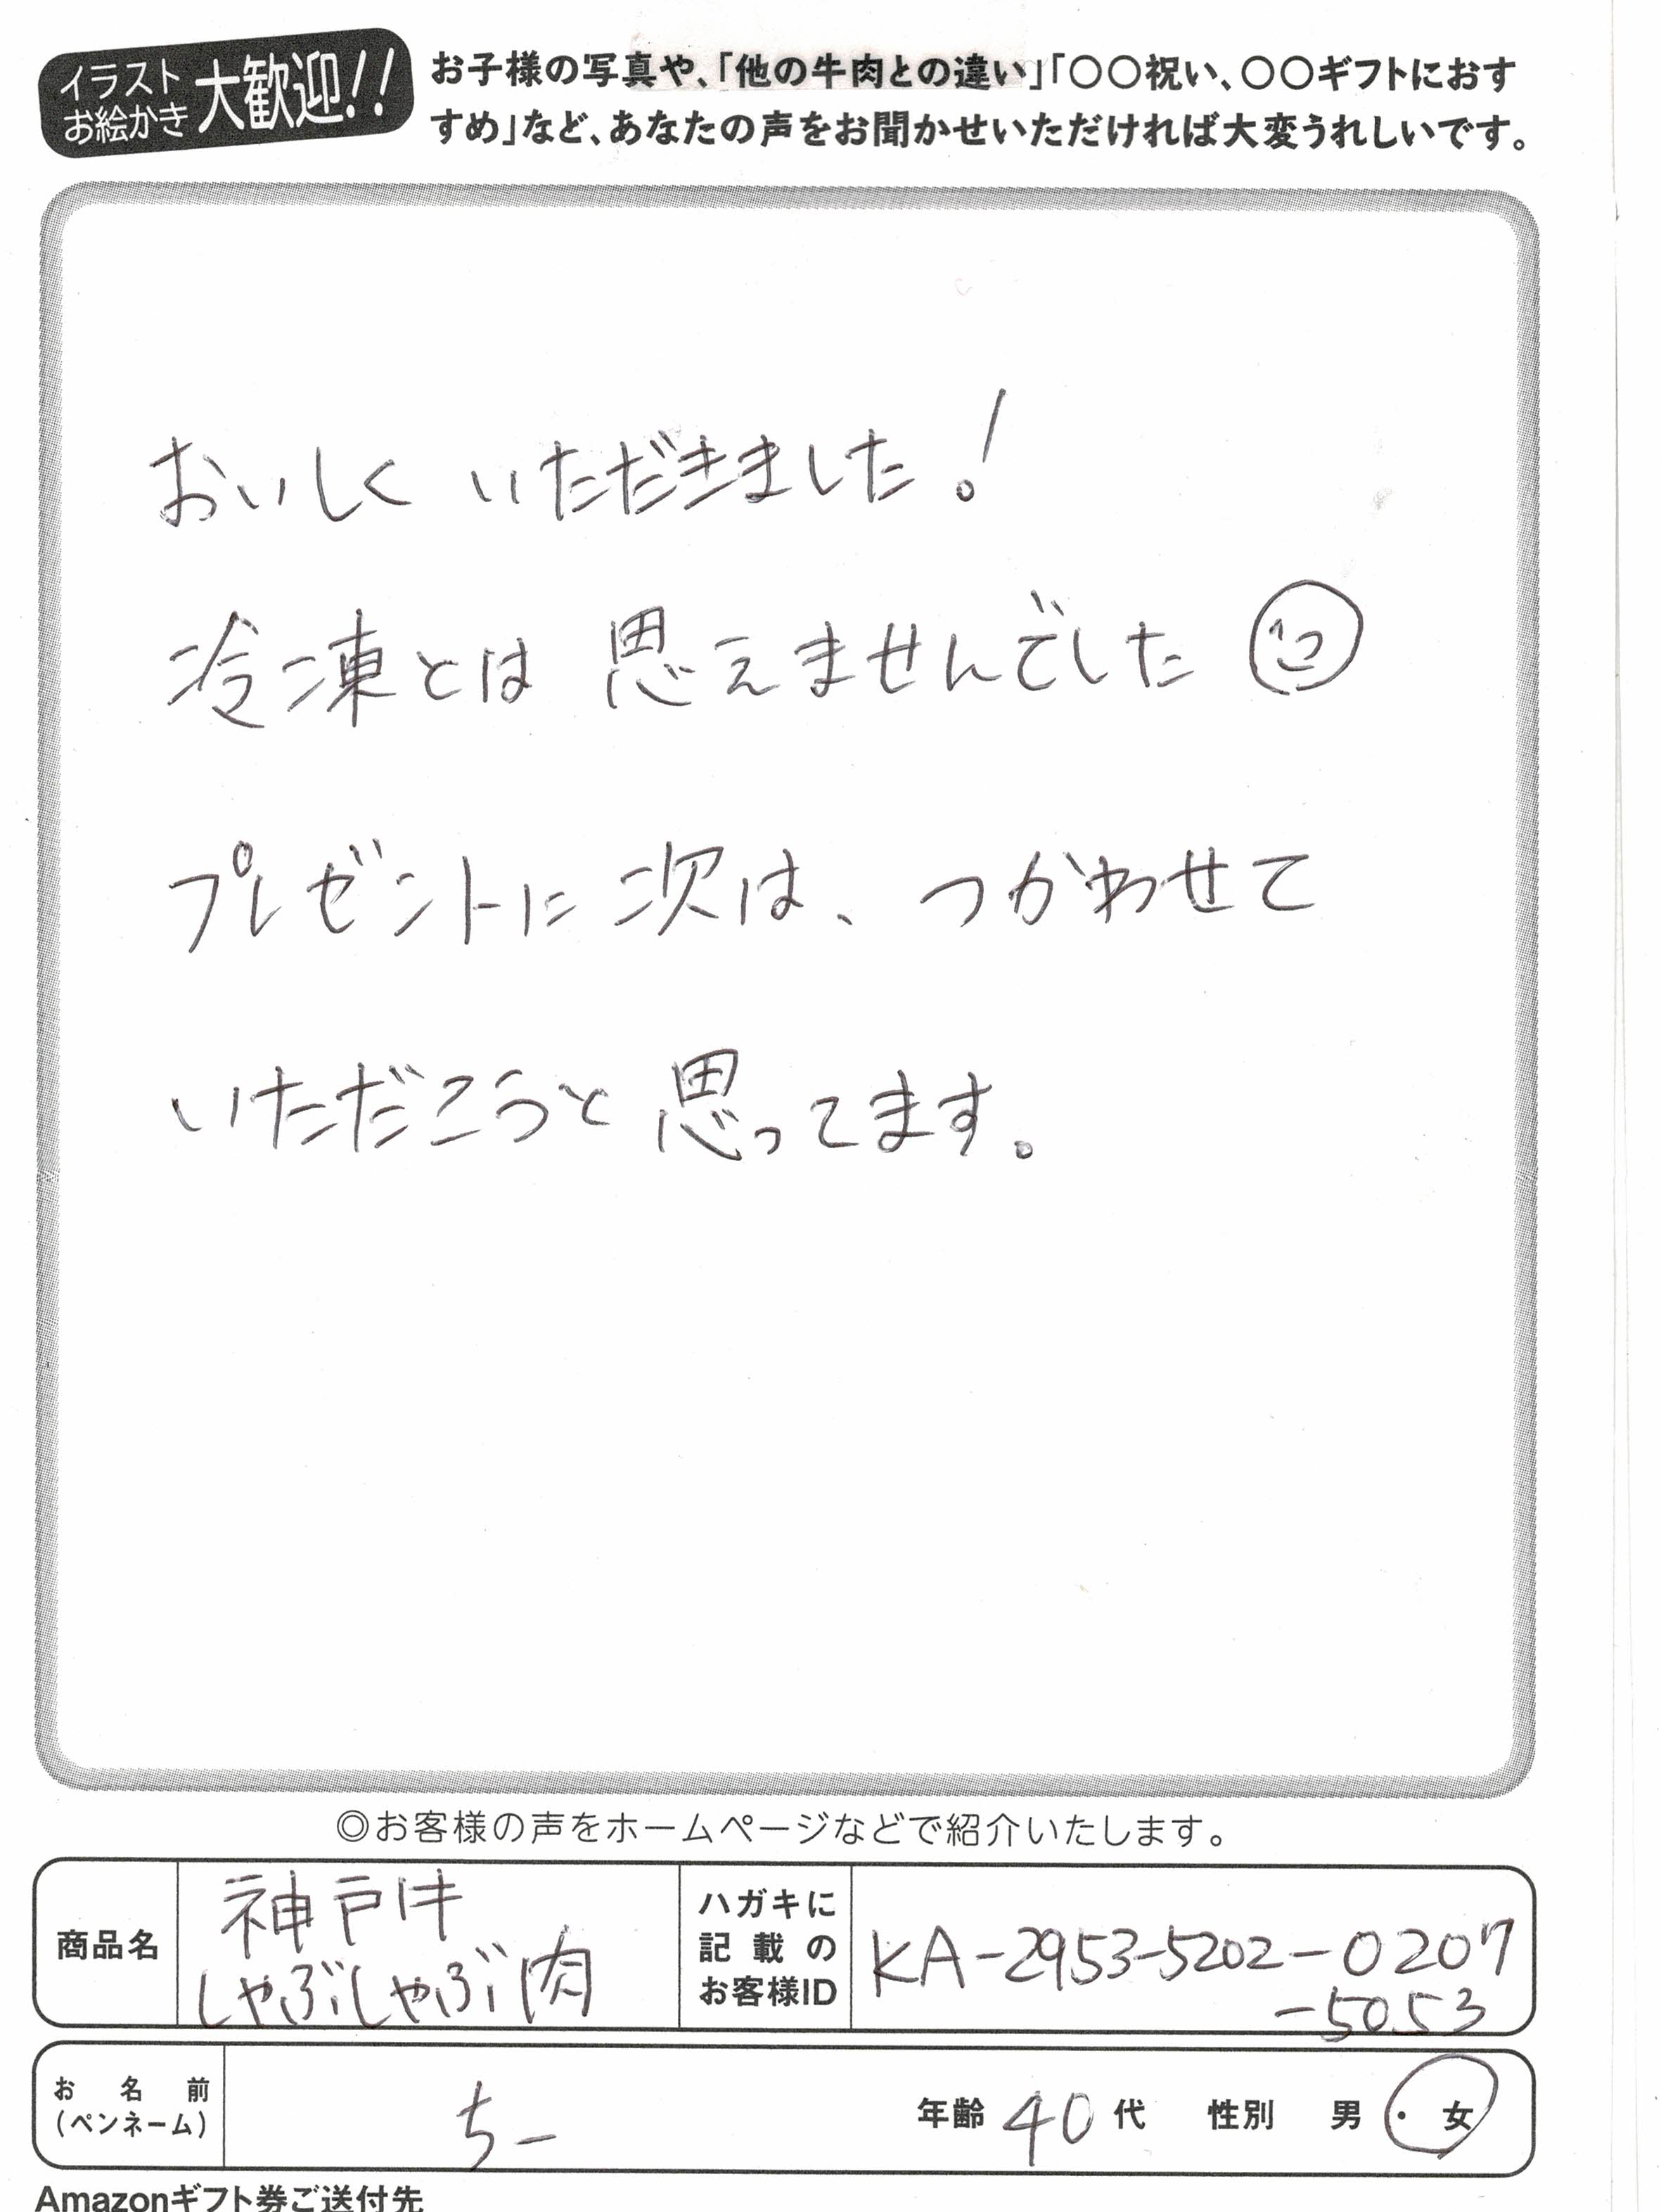 イラスト
お絵かき
大歓迎!!
お子様の写真や、「他の牛肉との違い」「〇〇祝い、〇〇ギフトにおす
すめ」など、あなたの声をお聞かせいただければ大変うれしいです。
おいしく いただきました!
冷凍とは 思えませんでした
プレゼントに 次は、つかわせて
いただこうと 思ってます。
◎お客様の声をホームページなどで紹介いたします。
商品名
神戸牛
しゃぶしゃぶ肉
ハガキに
記載の
お客様ID
KA-2953-5202-0207
-5053
お名前
(ペンネーム)
ちー
年齢 40 代 性別 男 ・ 女
Amazonギフト券ご送付先